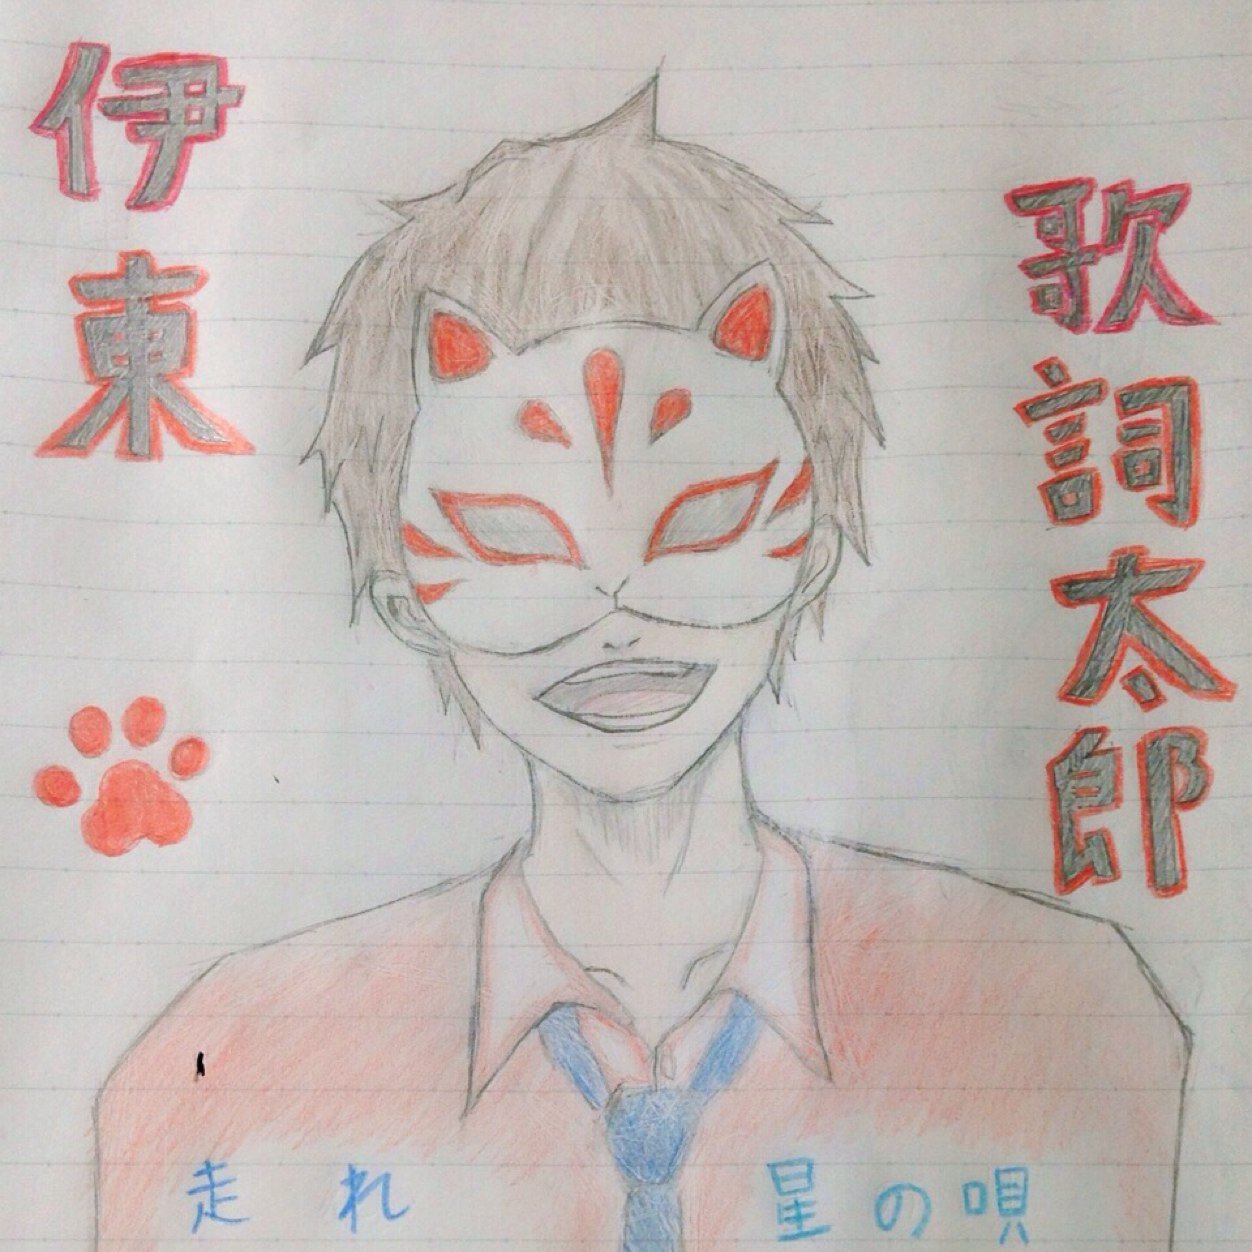 伊東
歌詞太郎
走れ
星の唄